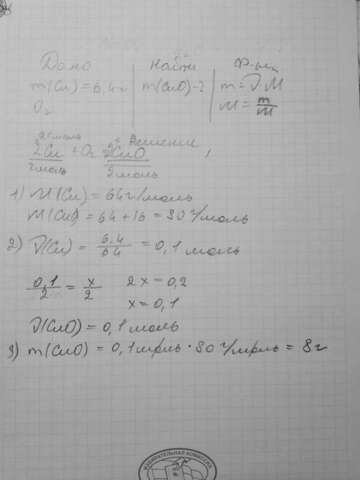 Дано
Найти
Ф-лы
m(Cu) = 6,4г
m(CuO)-?
m = ν M
O₂
M = m/M
Решение
0,1моль
x
2Cu + O₂ = 2CuO
2моль
2моль
1) M(Cu) = 64г/моль
M(CuO) = 64 + 16 = 80 г/моль
2) ν(Cu) = 6,4/64 = 0,1 моль
0,1/2 = x/2
2x = 0,2
x = 0,1
ν(CuO) = 0,1 моль
3) m(CuO) = 0,1моль · 80 г/моль = 8г
ИЗБИРАТЕЛЬНАЯ КОМИССИЯ